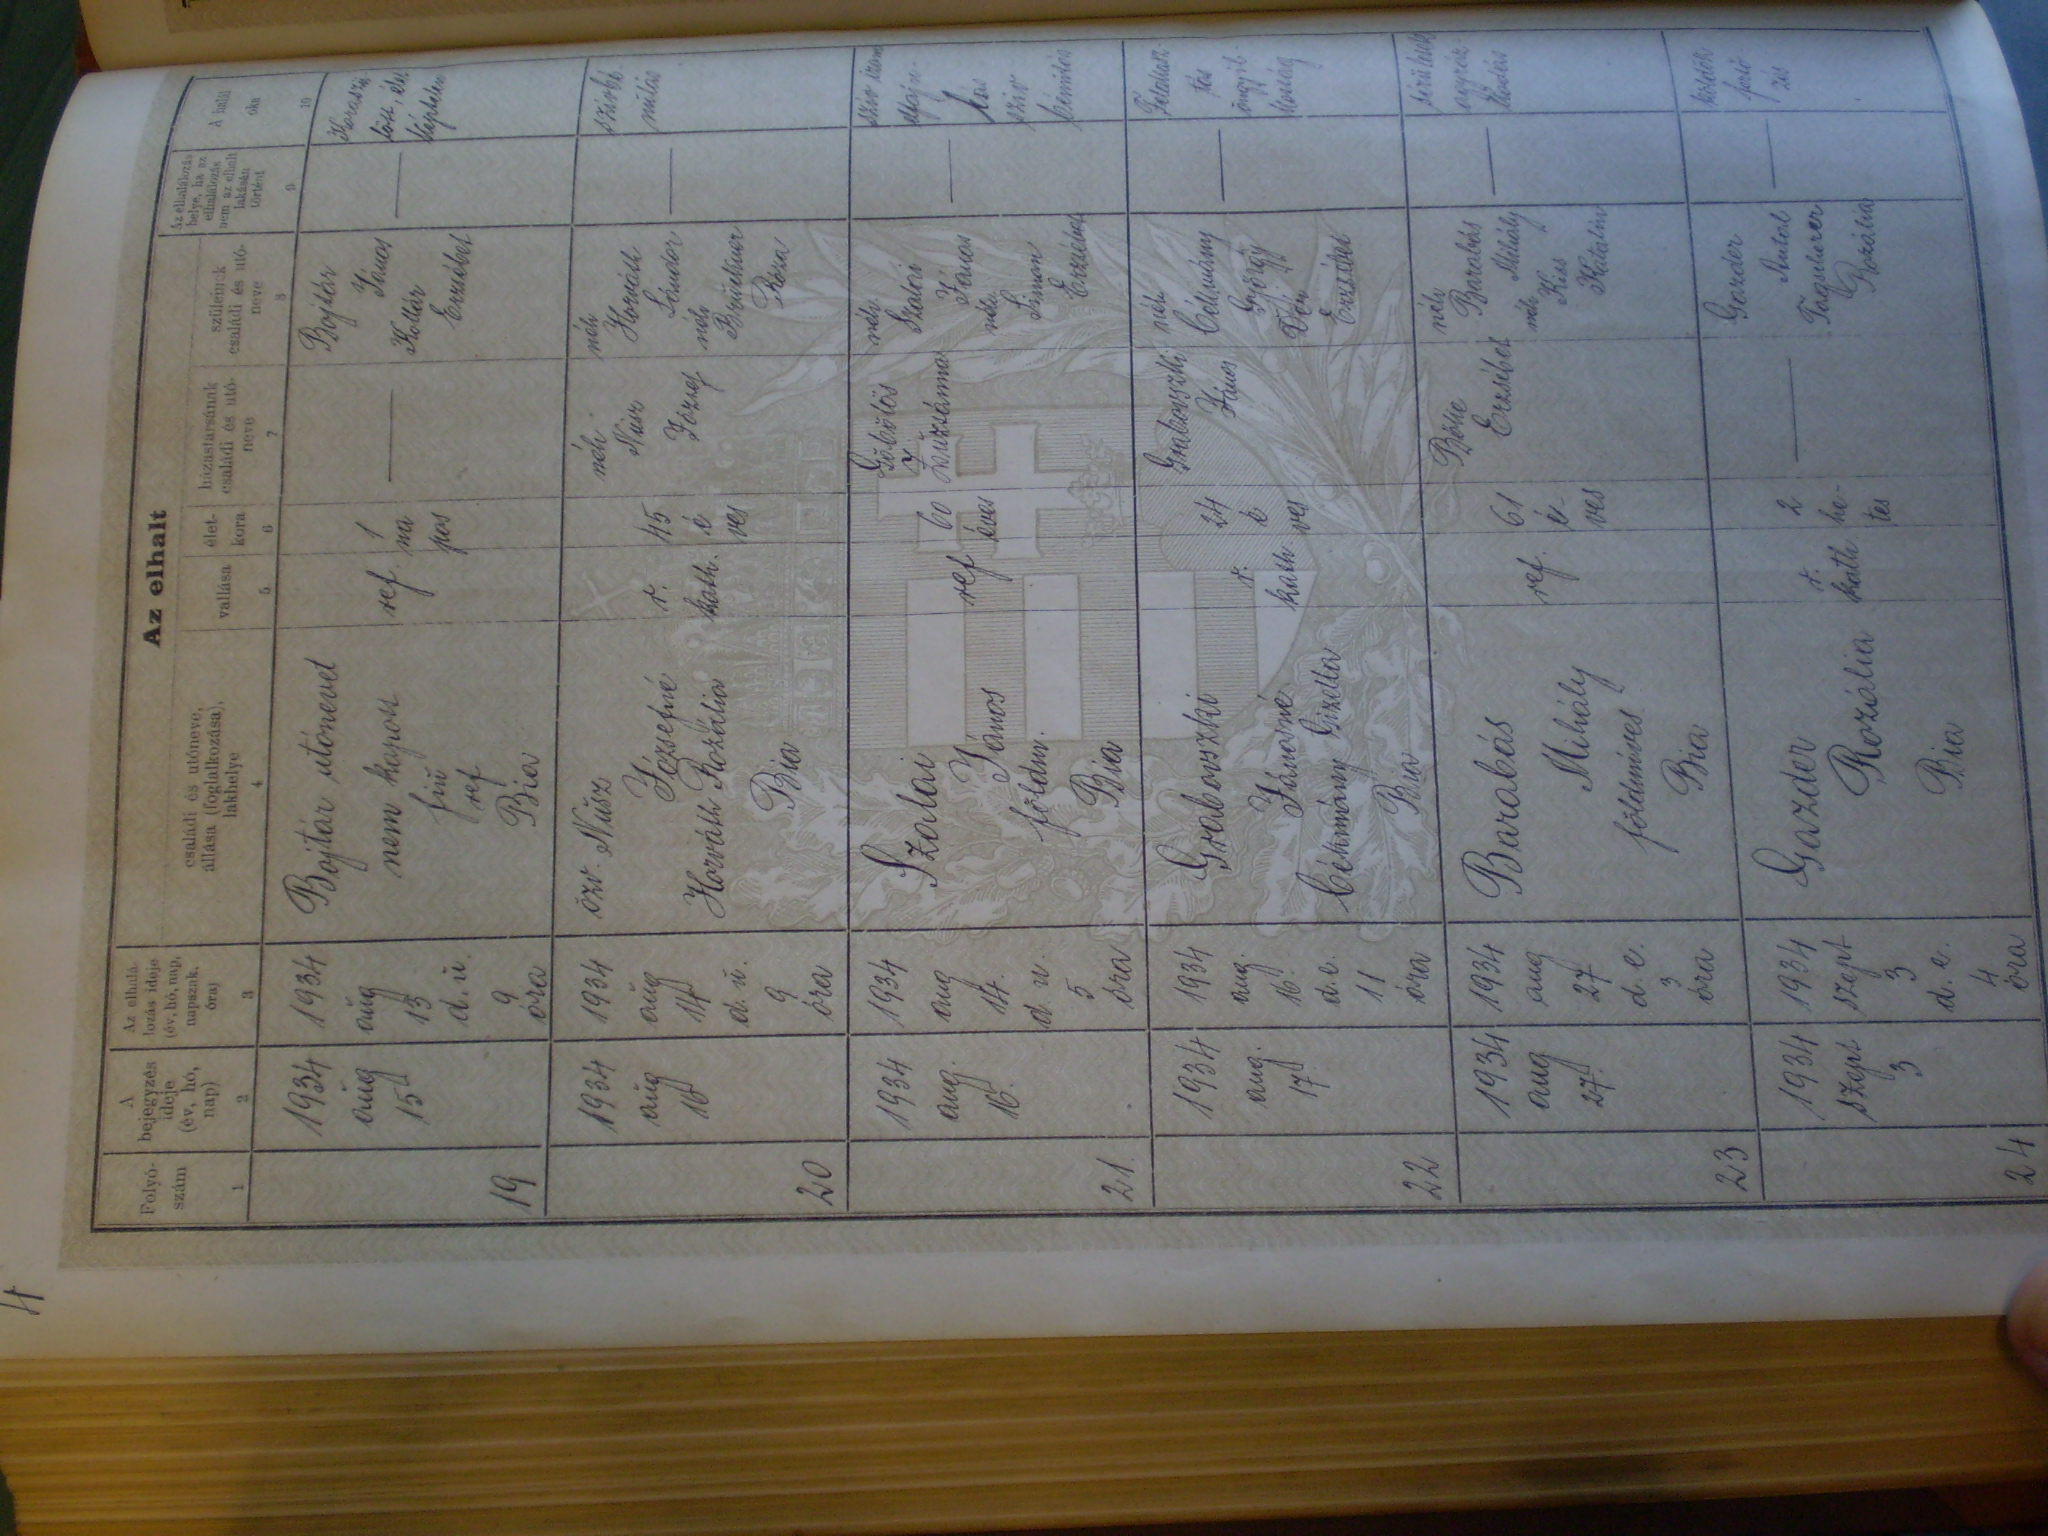 4
Az elhalt
Folyó-
szám
A
bejegyzés
ideje
(év, hó,
nap)
Az elhalá-
lozás ideje
(év, hó, nap,
napszak,
óra)
családi és utóneve,
állása (foglalkozása),
lakhelye
vallása
élet-
kora
házastársának
családi és utó-
neve
szüleinek
családi és utó-
neve
Az elhalálozás
helye, ha az
elhalálozás
nem az elhalt
lakásán
történt
A halál
oka
1
2
3
4
5
6
7
8
9
10
19
1934
aug
15
1934
aug
13
d. u.
9
óra
Bojtár utónevet
nem kapott
fiu
ref
Bia
ref.
1
na
pos
—
Bojtár
János
Kollár
Erzsébet
—
Koraszü
lött, élet
képtelen
20
1934
aug
16
1934
aug
14
d. u.
9
óra
özv. Nusz
Józsefné
Horváth Rozália
Bia
r.
kath.
45
é
ves
néh.
Nusz
József
néh
Horváth
Sándor
néh
Róza
—
szívbé
nulás
21.
1934
aug.
16.
1934
aug
14.
d. u.
5
óra
Szalai
János
földm.
Bia
ref
60
éves
Göbölös
Zsuzsánna
néh
Szalai
János
néh
Simon
Erzsébet
—
szív izom
elfaju-
lás
szív
22
1934
aug.
17
1934
aug.
16
d. e.
11
óra
Grabovszki
Jánosné
Czékmány Gizella
Bia
r.
kath
24
é
ves
Grabovszki
János
néh
Czékmány
György
Erzsébet
—
öngyil
kosság
23
1934
aug
27.
1934
aug
27
d. e.
3
óra
Barabás
Mihály
földmíves
Bia
ref.
61
é-
ves
Bőke
Erzsébet
néh
Barabás
Mihály
néh
Kiss
Katalin
—
24
1934
szept
3
1934
szept
3
d. e.
4
óra
Gazder
Rozália
Bia
r.
kath.
2
he-
tes
—
Gazder
Antal
Rozália
—